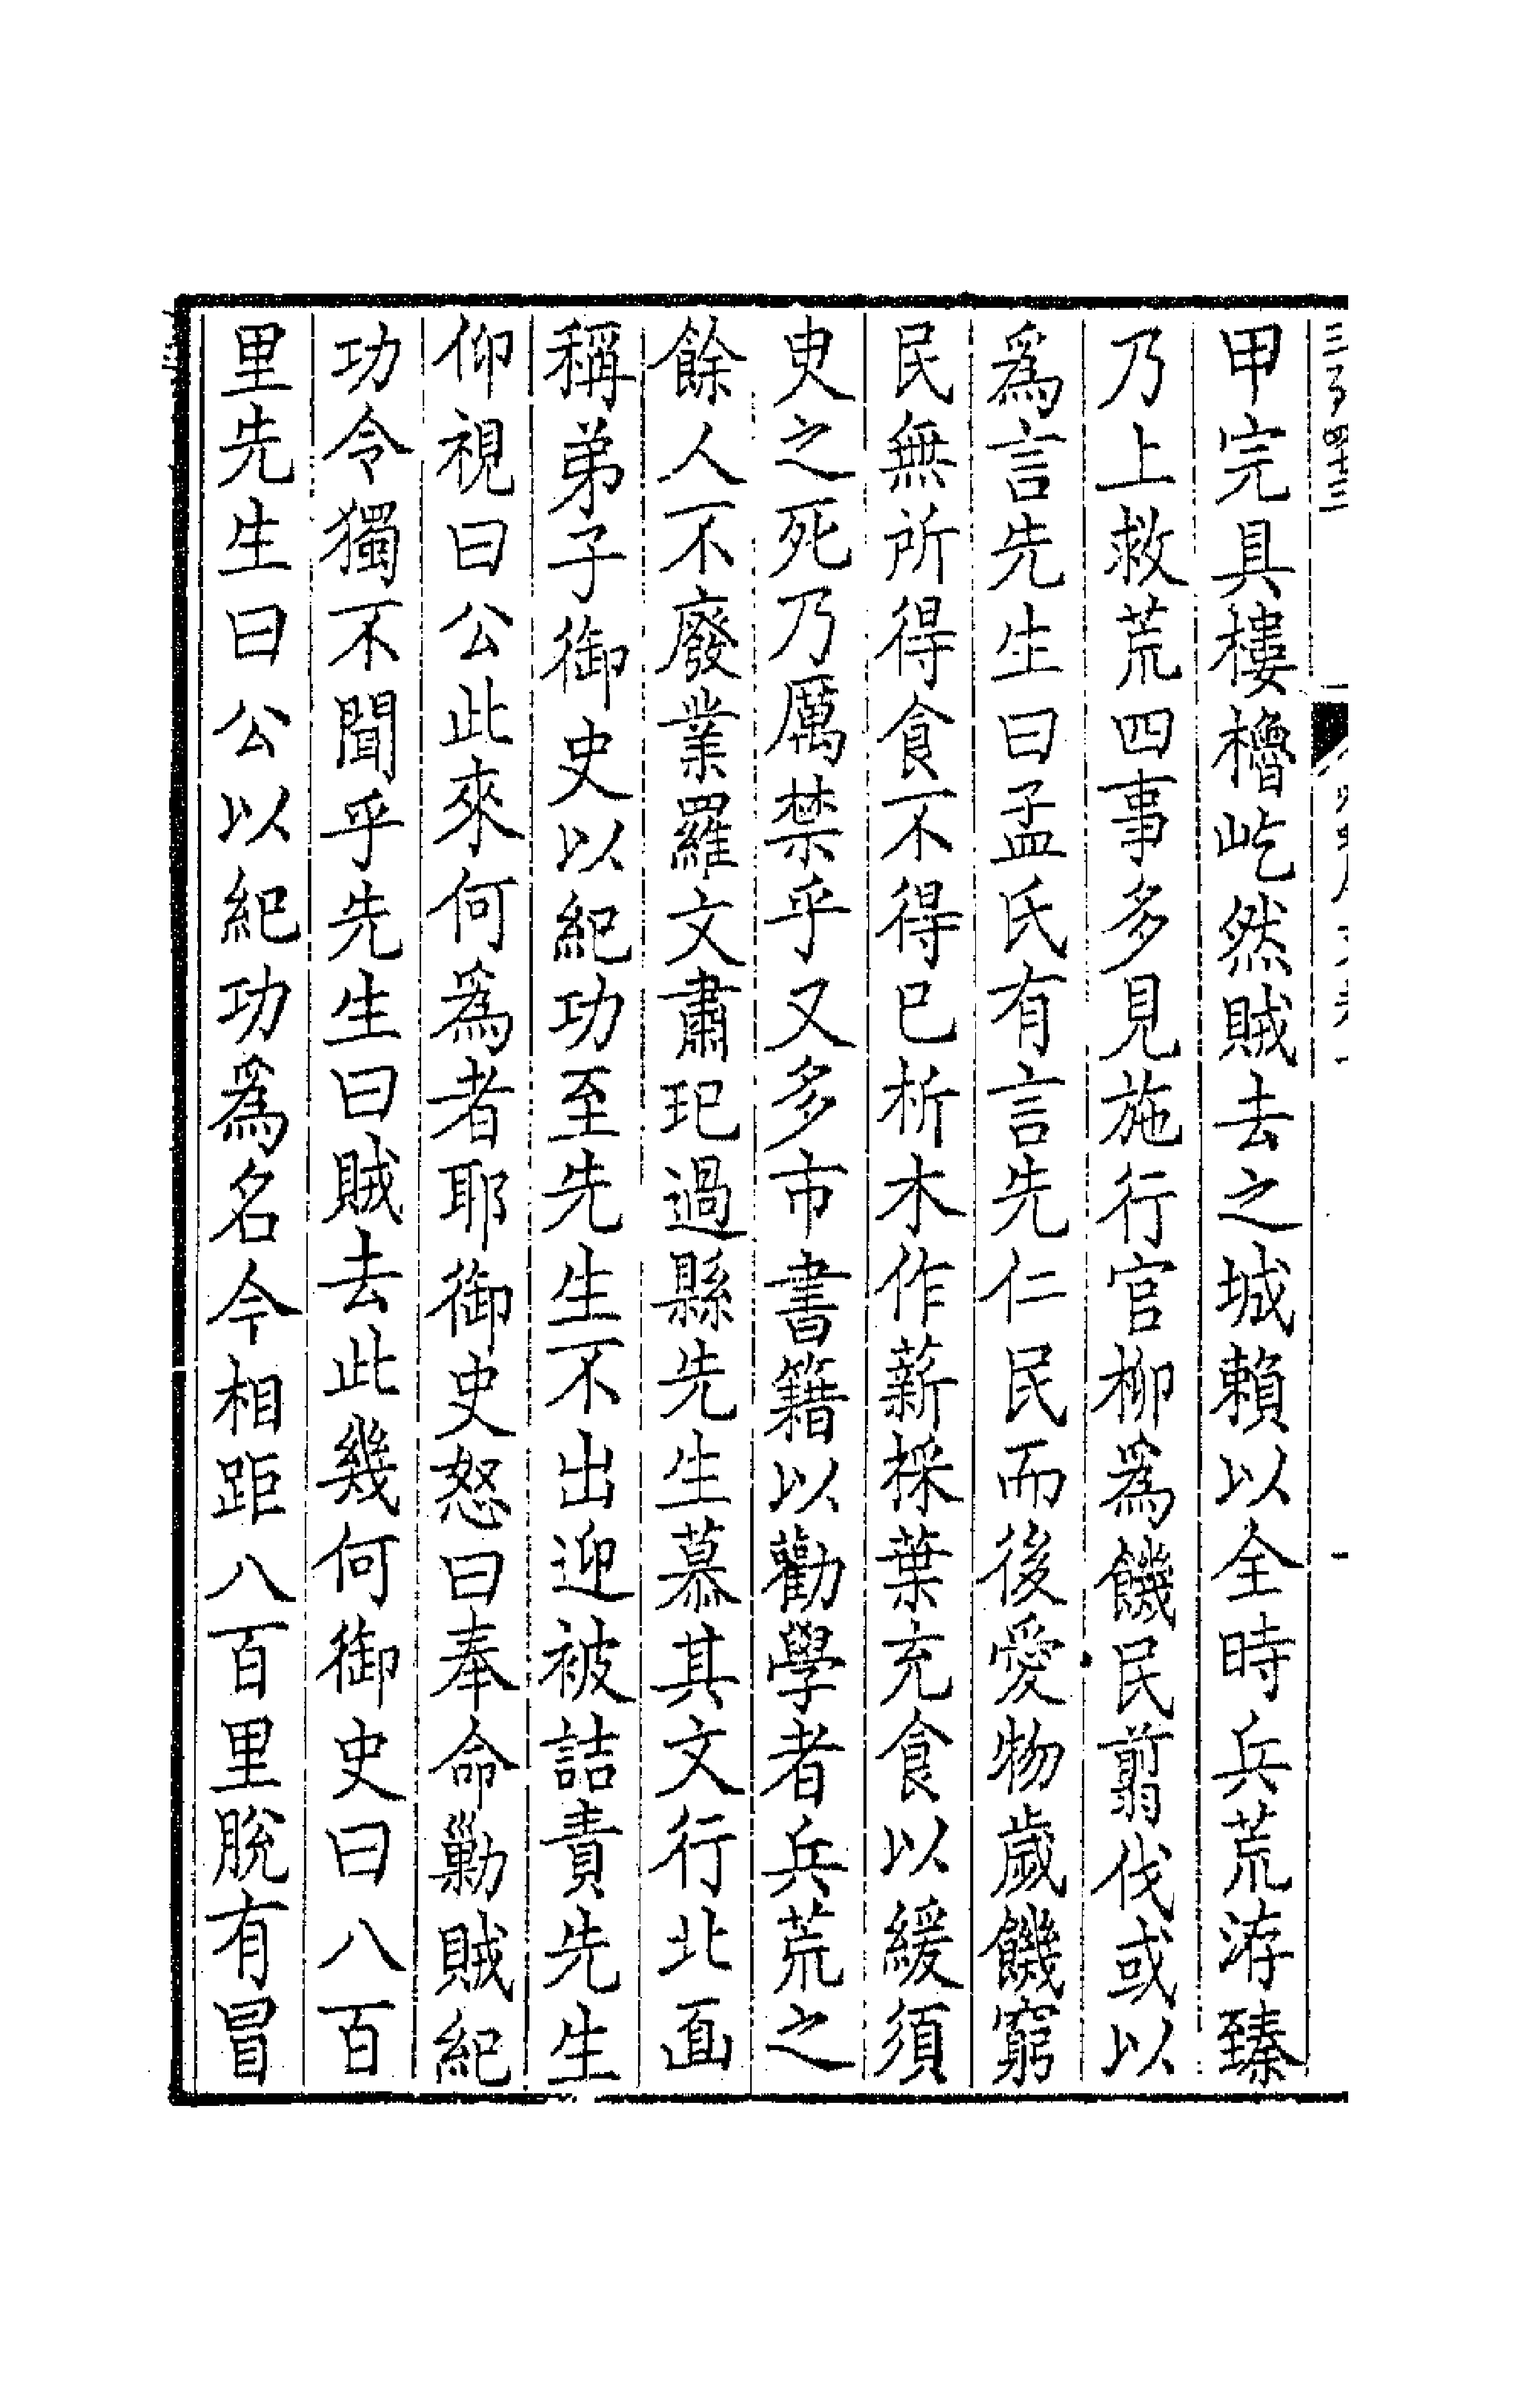 甲完具樓櫓屹然賊去之城賴以全時兵荒洊臻
乃上救荒四事多見施行官柳爲饑民翦伐或以
爲言先生曰孟氏有言先仁民而後愛物歲饑窮
民無所得食不得已析木作薪採葉充食以緩須
㬰之死乃厲禁乎又多市書籍以勸學者兵荒之
餘人不廢業羅文肅玘過縣先生慕其文行北面
稱弟子御史以紀功至先生不出迎被詰責先生
仰視曰公此來何爲者耶御史怒曰奉命勦賊紀
功令獨不聞乎先生曰賊去此幾何御史曰八百
里先生曰公以紀功爲名今相距八百里脫有冒